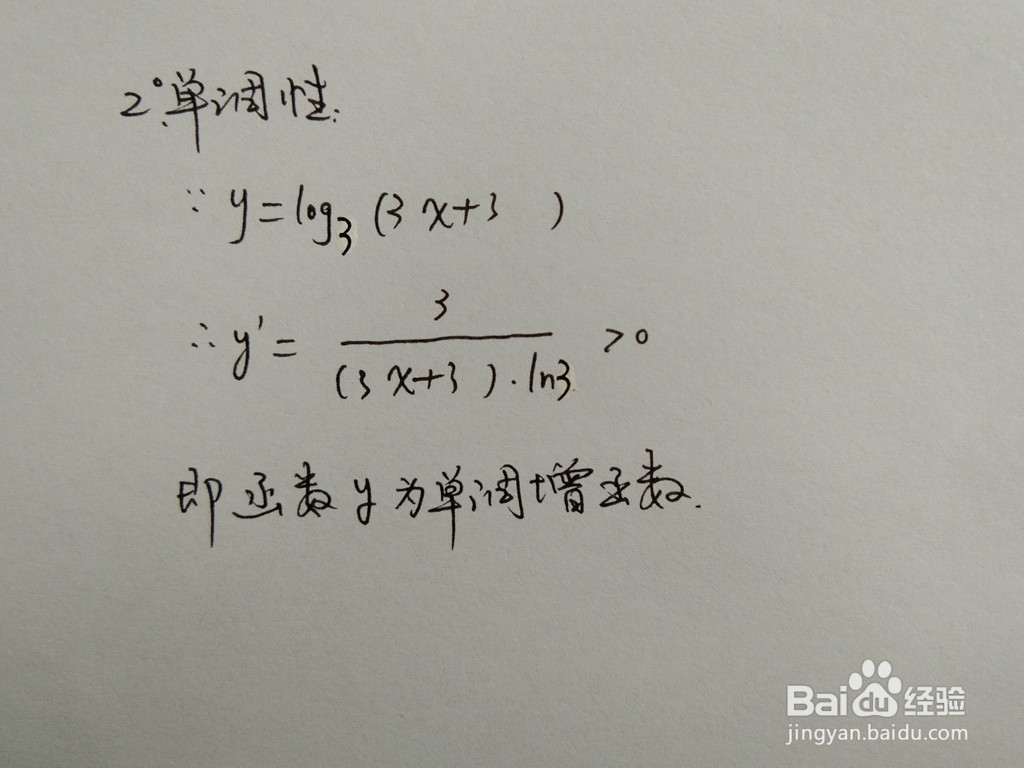 2°.单调性:
∵ y=log₃(3x+3 )
∴ y'= 3/((3x+3)·ln3) >0
即函数y为单调增函数.
Bai du 经验
jingyan.baidu.com